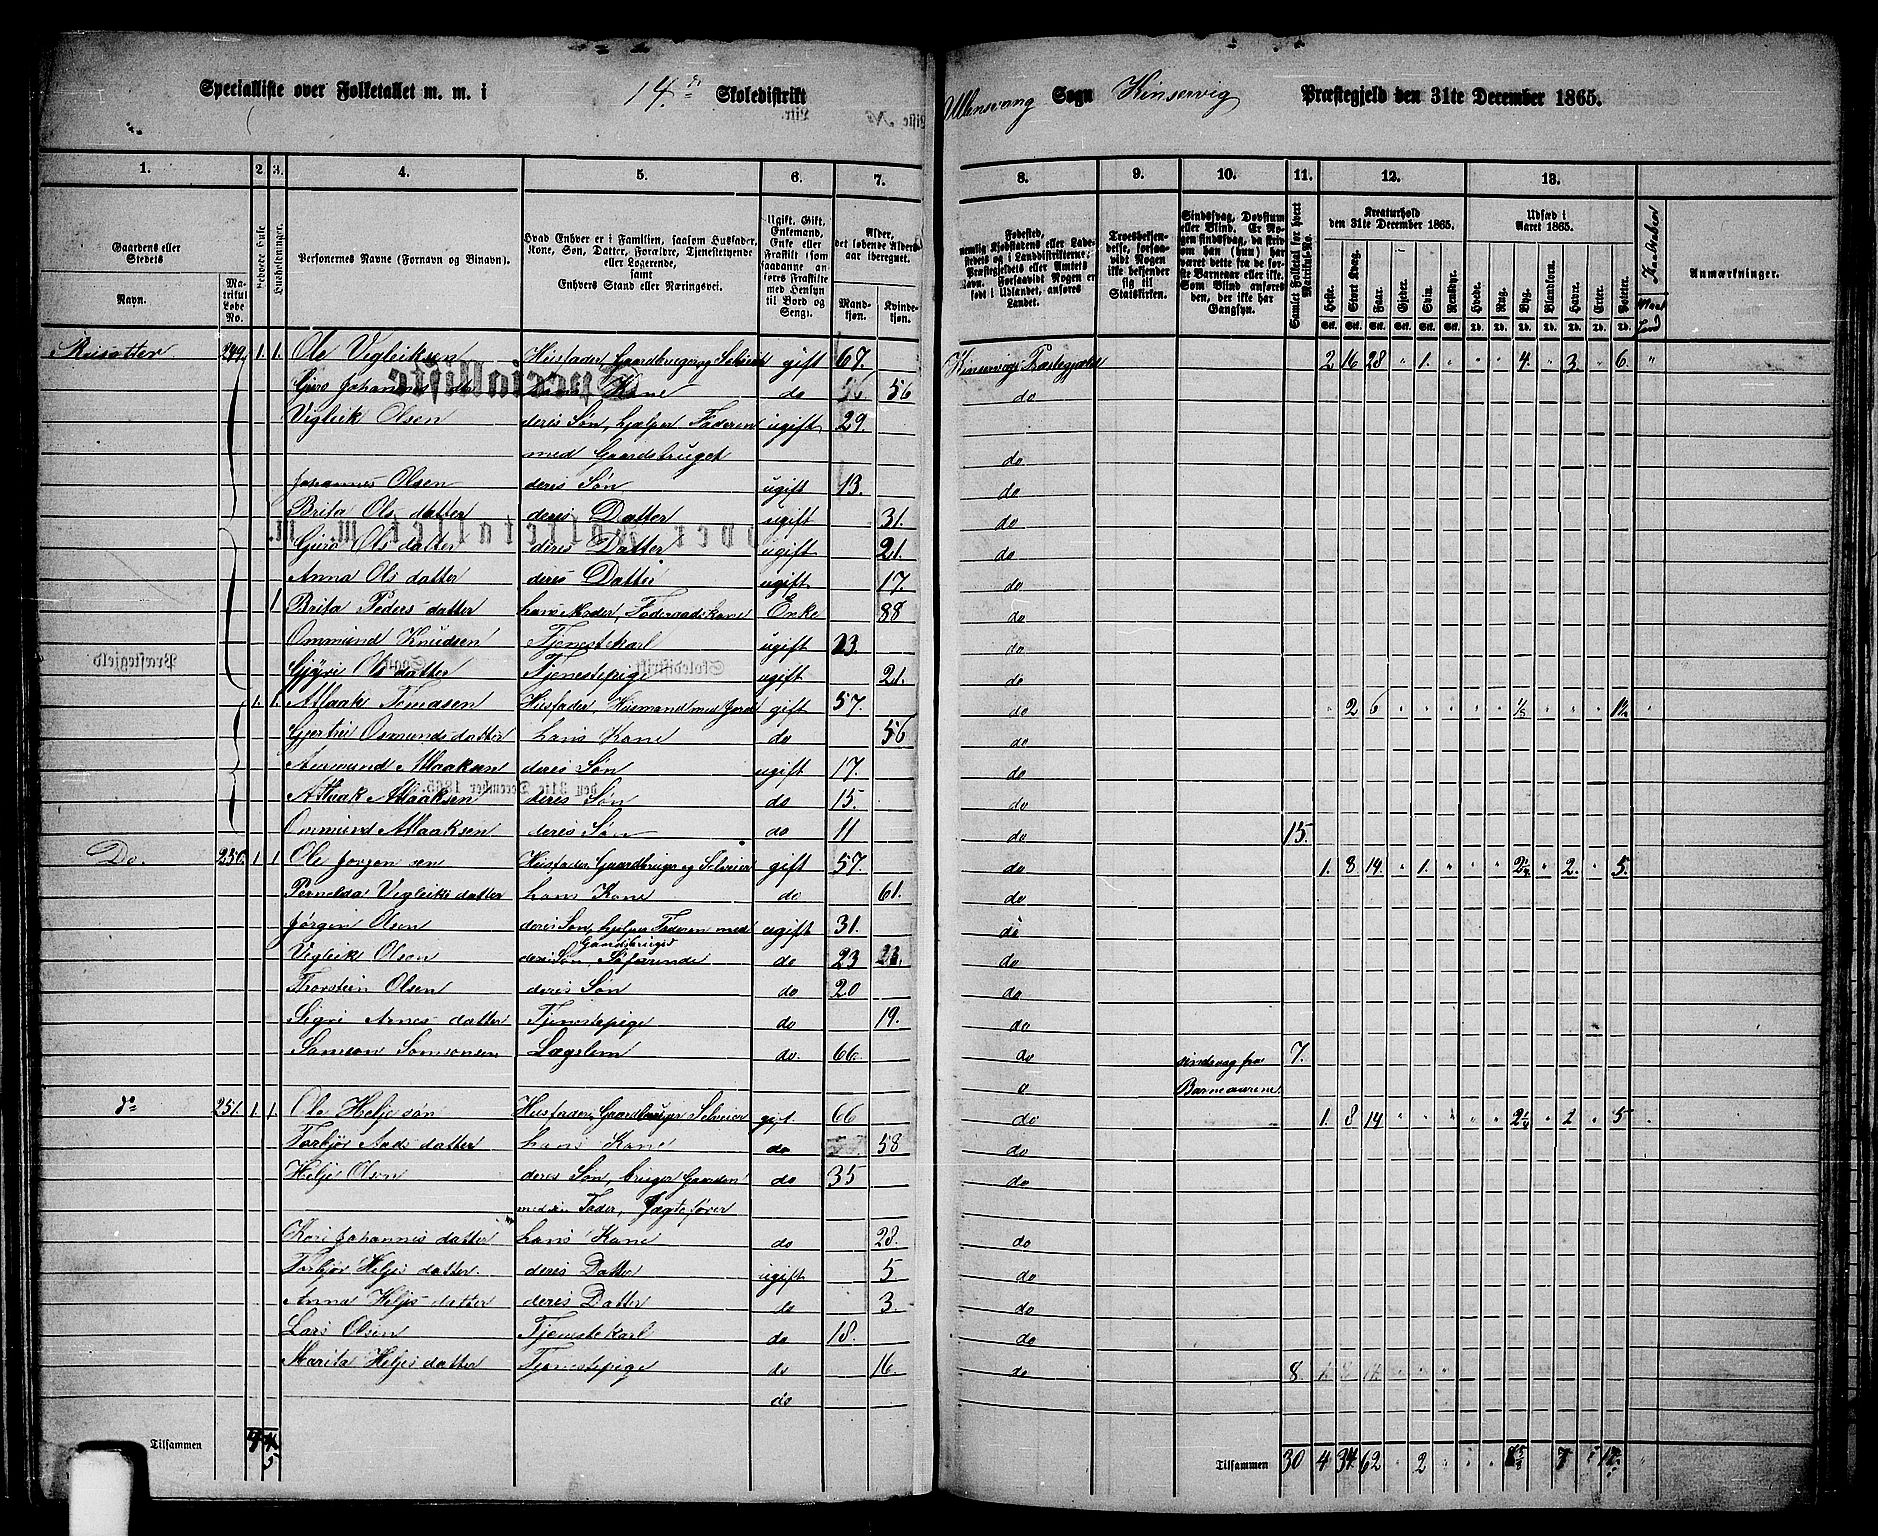 Specialliste over Folketallet m. m. i 14. Skoledistrikt Ullensvang Sogn Kinservig Præstegjeld den 31te December 1865.
1. 2. 3. 4. 5. 6. 7. 8. 9. 10. 11. 12. 13.
Gaardens eller Stedets
Navn. Matrikul Løbe No.
Beboede Huse
Husholdninger.
Personernes Navne (Fornavn og Binavn).
Hvad Enhver er i Familien, saasom Husfader,
Kone, Søn, Datter, Forældre, Tjenestetyende
eller Logerende,
samt
Enhvers Stand eller Næringsvei.
Ugift, Gift,
Enkemand,
Enke eller
Fraskilt (som
saadanne an-
føres Fraskilte
med Hensyn
til Bord og
Seng).
Alder,
det løbende Alders-
aar iberegnet.
Mand-kjøn. Kvinde-kjøn.
Fødested,
Troesbekjen-
delse, forsaa-
vidt Nogen
ikke bekjender
sig til
Statskirken.
Sindssvag, Døvstum
eller Blind. Er No-
gen sindssvag, da skri-
ves om han (hun) har
været dette fra de før-
ste Barneaar eller ikke.
Som Blind anføres
den, der ikke har
Gangsyn.
Samlet Folketal for hvert Matrikul-No.
Kreaturhold
den 31te December 1865.
Heste. Stort Kvæg. Faar. Gjeder. Svin. Rensdyr.
Udsæd i
Aaret 1865.
Hvede. Rug. Byg. Blandkorn. Havre. Erter. Poteter.
Anmærkninger.
249. 1. 1. Ole Vigleiksen Husfader, Gaardbruger og Selveier gift 67. Kinservigs Præstegjeld 2 16 28 " 1. " " " 4. " 3. " 6. "
Guro Johannes dtr Kone do 56 do
Vigleik Olsen deres Søn, hjælper Faderen ugift 29.
med Gaardsbruget do
Johannes Olsen deres Søn ugift 13. do
Brita Ols datter deres Datter ugift 31. do
Guro Ols datter deres Datter ugift 21. do
Anna Ols datter deres Datter ugift 17. do
1 Brita Peders datter hans Moder, Føderaadskone Enke 88 do
Ommund Knudsen Tjenestekarl ugift 23. do
Ols datter Tjenestepige ugift 21. do
1. 1. Atlaak Tomasen Husfader, Husmand med Jord gift 57. do " 2 6 " " " " " 1/8 " " " 1½ "
Gjertru Osmunds datter hans Kone do 56 do
Aamund Atlaaksen deres Søn ugift 17. do
Atlaak Atlaaksen deres Søn do 15. do
Ommund Atlaaksen deres Søn do 11 do 15.
Do. 250. 1 1 Ole Jørgensen Husfader, Gaardbruger og Selveier gift 57. do 1. 8 14. " 1. " " " 2¼ " 2. " 5. "
Pernelda Vigleiks datter hans Kone do 61. do
Jørgen Olsen deres Søn, hjelper Faderen med ugift 31. do
Gaardsbruget
Vigleik Olsen deres Søn Søfarende do 23 do
Thorstein Olsen deres Søn do 20 do
Sigri Arnes datter Tjenestepige do 19. do
Samson Samsonsen Lægslem do. 66 do sindsvag fra 7.
o Barneaarene.
do 251. 1. 1. Ole Heljesøn Husfader, Gaardbruger Selveier gift. 66 do 1. 8 14 " " " " " 2¼ " 2 " 5 "
Torbjør Aads datter hans Kone do 58 do
Helje Olsen deres Søn, bruger Gaarden do 35 do
med sin Fader, Jægtefører
Kari Johannes datter hans Kone do 28. do
Torbjør Heljes datter. deres Datter ugift 5 do
Anna Heljes datter deres Datter do 3. do
Lars Olsen Tjenestekarl do 18. do
Marita Heljes datter Tjenestepige do 16 do 8.
do
Tilsammen 4 5 Tilsammen 30 4 34 62 " 2 " " " " 7 "